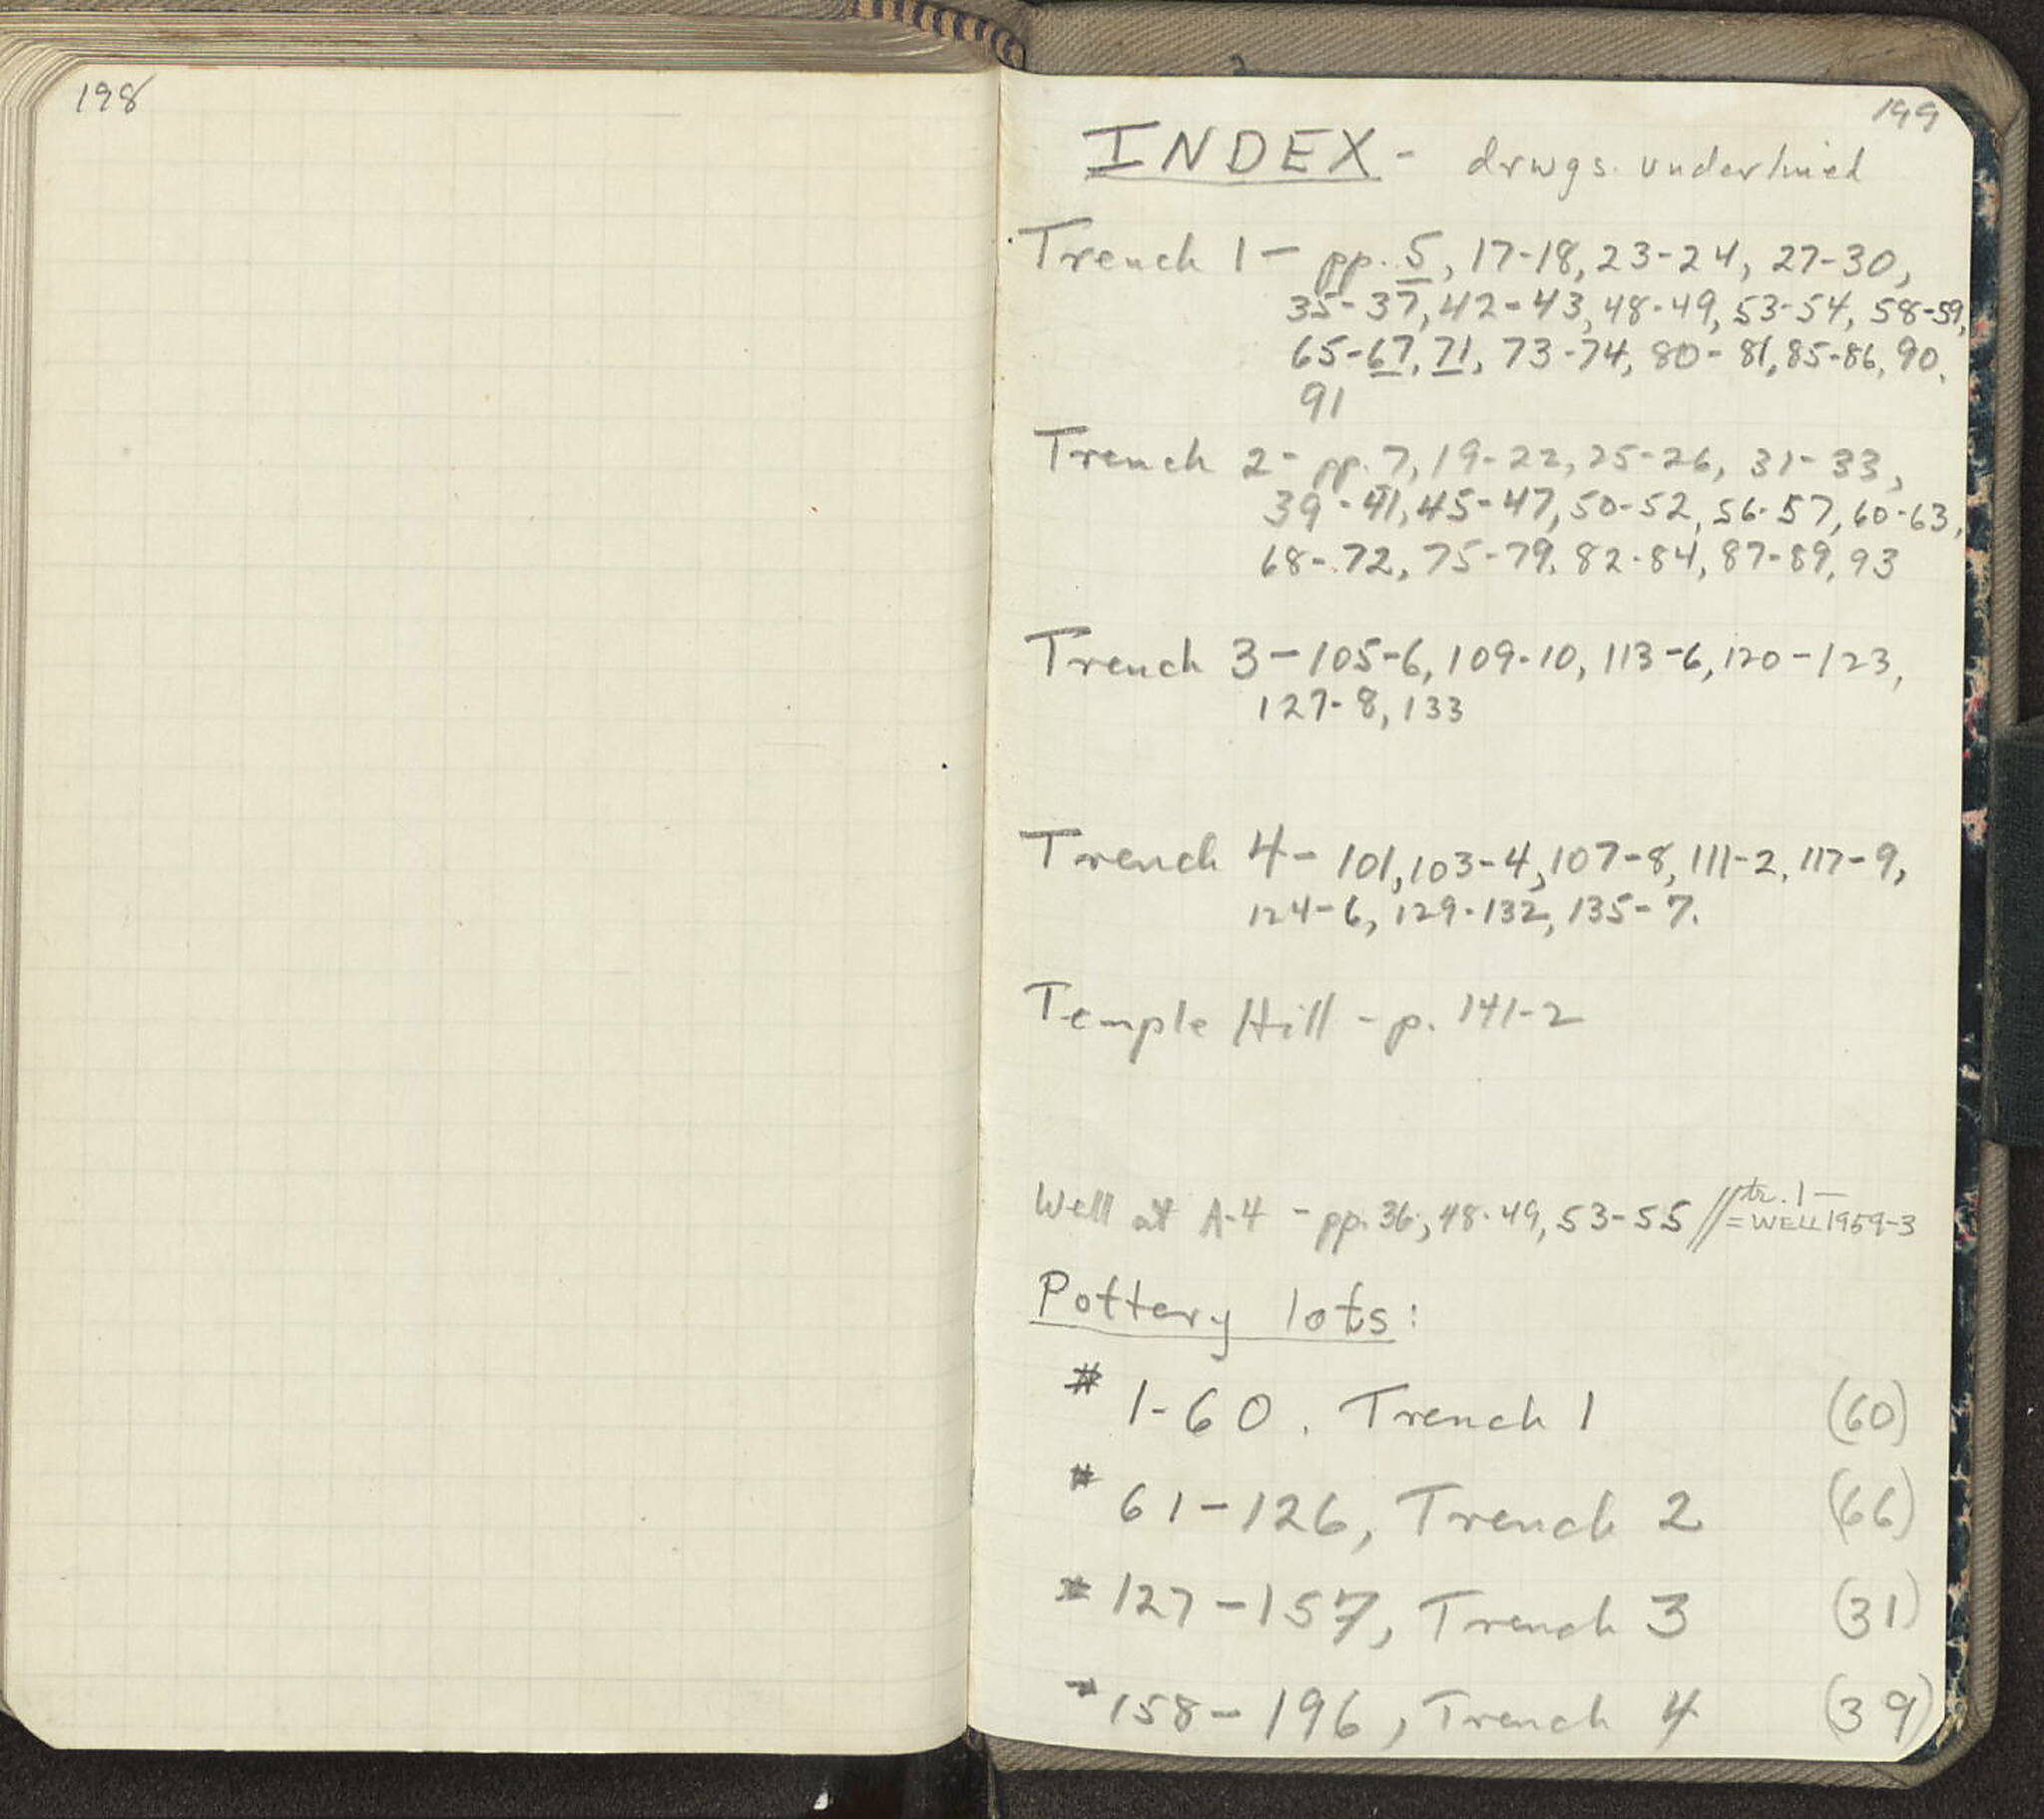 198
199
INDEX - drwgs. underlined
Trench 1 - pp. 5, 17-18, 23-24, 27-30,
35-37, 42-43, 48-49, 53-54, 58-59,
65-67, 71, 73-74, 80-81, 85-86, 90,
91
Trench 2 - pp. 7, 19-22, 25-26, 31-33,
39-41, 45-47, 50-52, 56-57, 60-63,
68-72, 75-79, 82-84, 87-89, 93
Trench 3 - 105-6, 109-10, 113-6, 120-123,
127-8, 133
Trench 4 - 101, 103-4, 107-8, 111-2, 117-9,
124-6, 129-132, 135-7.
Temple Hill - p. 141-2
Well at A-4 - pp. 36, 48-49, 53-55 // tr. 1 -
= WELL 1959-3
Pottery lots:
# 1-60. Trench 1 (60)
# 61-126, Trench 2 (66)
# 127-157, Trench 3 (31)
# 158-196, Trench 4 (39)